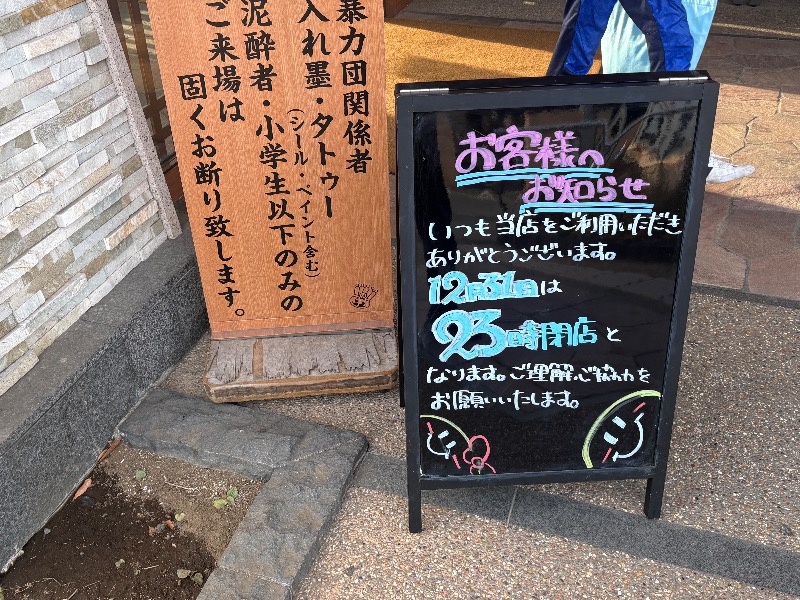 暴力団関係者
入れ墨・タトゥー
(シール・ペイント含む)
泥酔者・小学生以下のみの
ご来場は
固くお断り致します。
お客様の
お知らせ
いつも当店をご利用いただき
ありがとうございます。
12月31日は
23時閉店と
なります。ご理解、ご協力を
お願いいたします。